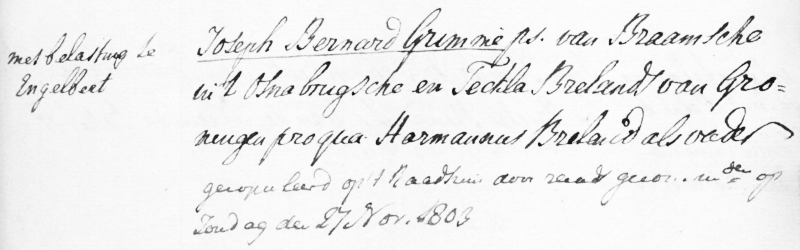 met belasting te
Engelbert
Joseph Bernard Grimme ps. van Braamsche
in't Osnabrugsche en Teckla Brelandt van Gro=
nengen pro qua Harmannus Breland als vader
gecopuleerd op't Raadhuis door op
Zondag den 27 Nov. 1803